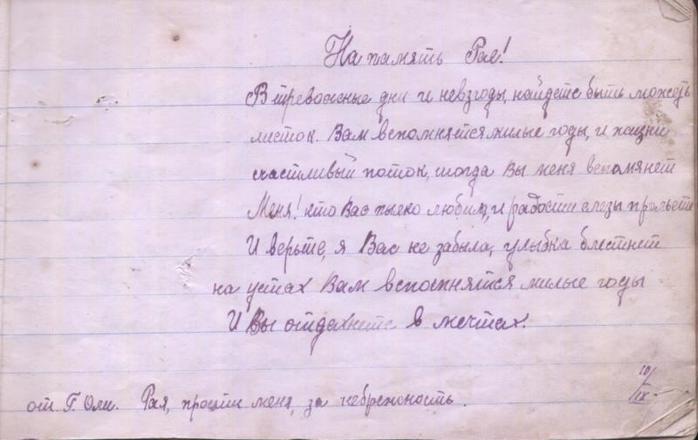 На память Рае!
В тревожные дни и невзгоды, найдете быть может
листок. Вам вспомнятся милые годы, и жизни
счастливый поток, тогда Вы меня вспомянет
Меня! кто Вас пылко любил, и радости слезы прольете
И верьте, я Вас не забыла, улыбка блестнет
на устах Вам вспомнятся милые годы
И Вы отдохнете в мечтах.
10/IX
от Г. Оли. Рая, прости меня, за небрежность.